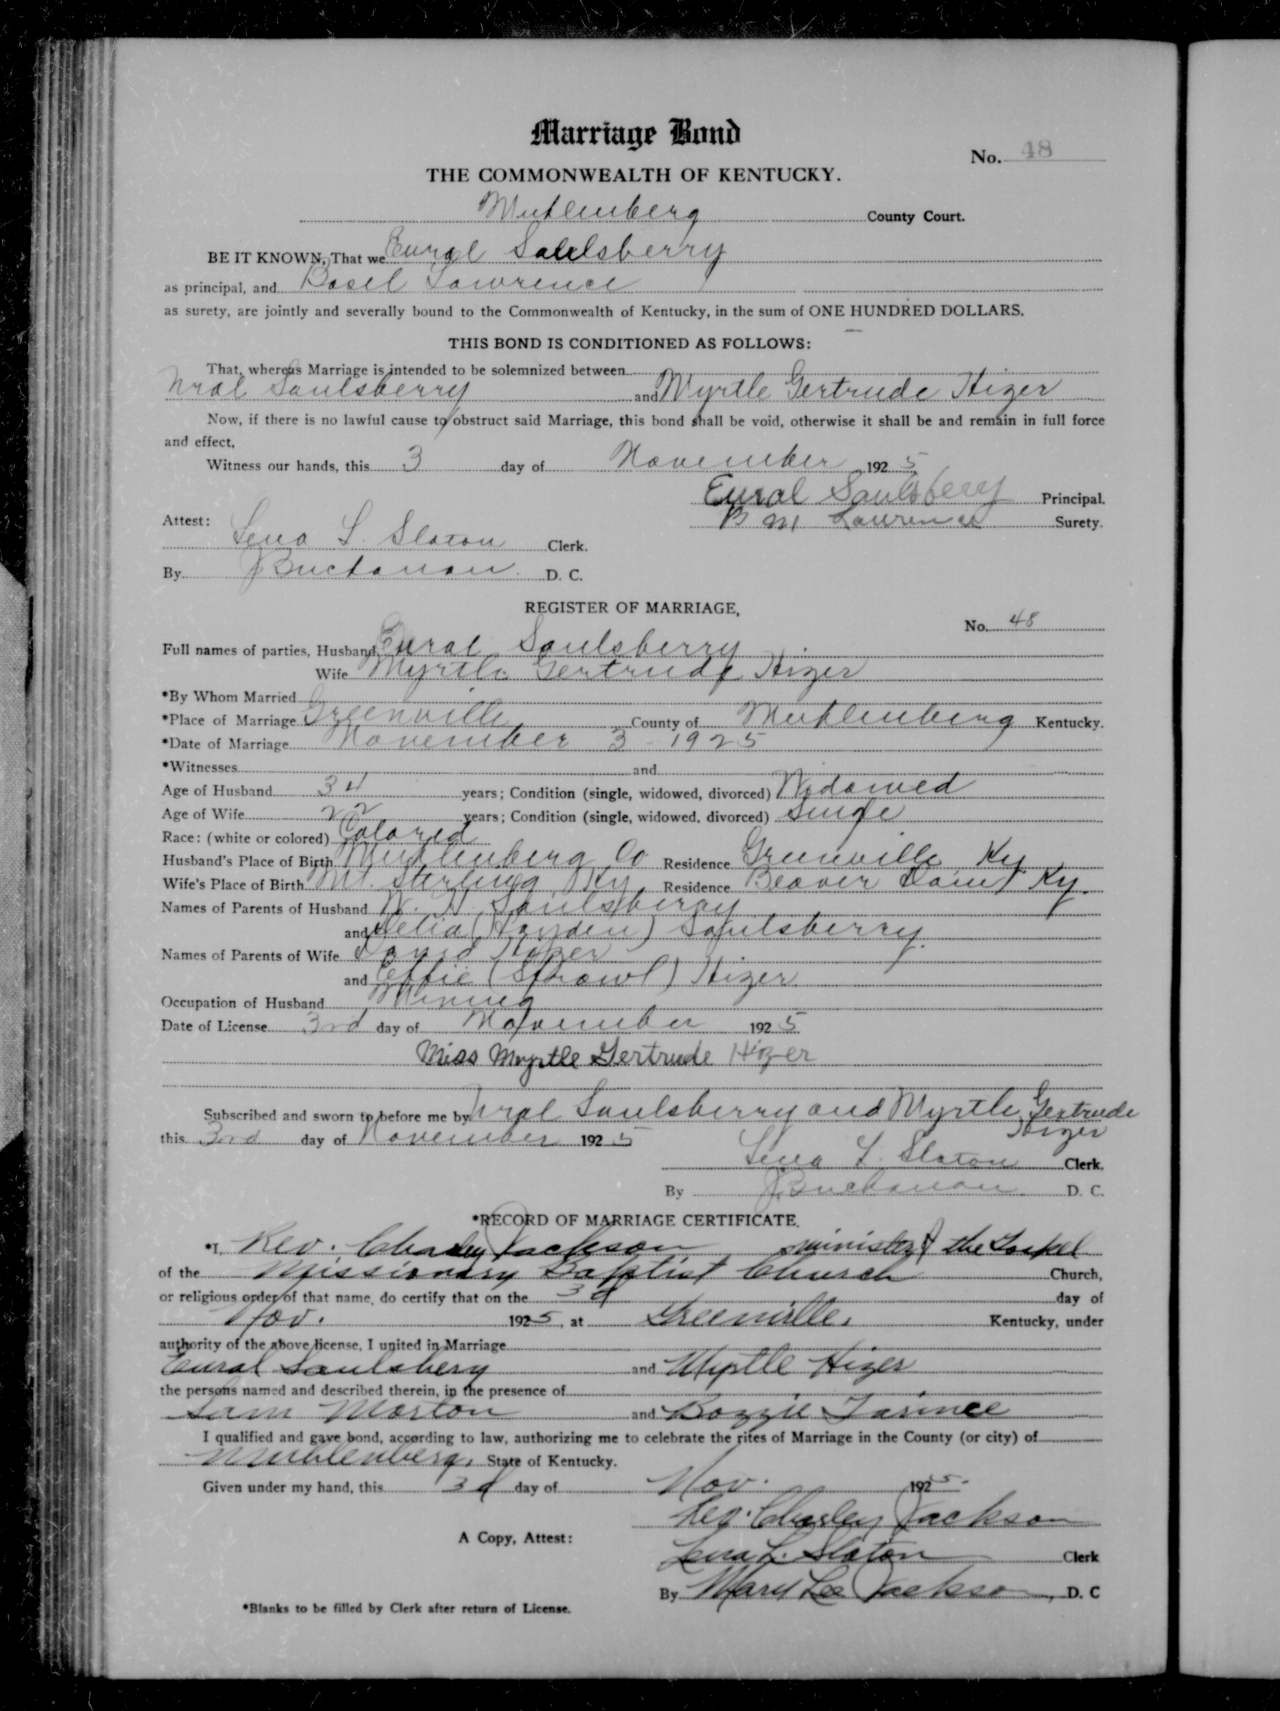 Marriage Bond
No. 48
THE COMMONWEALTH OF KENTUCKY.
Muhlenberg County Court.
BE IT KNOWN, That we Eural Saulsberry
as principal, and Basel Lawrence
as surety, are jointly and severally bound to the Commonwealth of Kentucky, in the sum of ONE HUNDRED DOLLARS.
THIS BOND IS CONDITIONED AS FOLLOWS:
That, whereas Marriage is intended to be solemnized between
Ural Saulsberry and Myrtle Gertrude Hizer
Now, if there is no lawful cause to obstruct said Marriage, this bond shall be void, otherwise it shall be and remain in full force
and effect.
Witness our hands, this 3 day of November 1925
Eural Saulsbery Principal.
B M Lawrence Surety.
Attest:
Lena L. Slaton Clerk.
By J Buchanan D. C.
REGISTER OF MARRIAGE,
No. 48
Full names of parties, Husband Eural Saulsberry
Wife Myrtle Gertrude Hizer
*By Whom Married
*Place of Marriage Greenville County of Muhlenberg Kentucky.
*Date of Marriage November 3 - 1925
*Witnesses and
Age of Husband 34 years; Condition (single, widowed, divorced) Widowed
Age of Wife 22 years; Condition (single, widowed, divorced) Single
Race: (white or colored) Colored
Husband's Place of Birth Muhlenberg Co Residence Greenville Ky
Wife's Place of Birth Mt. Sterling Ky, Residence Beaver Dam Ky.
Names of Parents of Husband W. H. Saulsberry
and Delia (Hayden) Saulsberry.
Names of Parents of Wife David Hizer
and Effie (Sprawl) Hizer
Occupation of Husband Mining
Date of License 3rd day of November 1925
Miss Myrtle Gertrude Hizer
Subscribed and sworn to before me by Ural Saulsberry and Myrtle Gertrude
Hizer
this 3rd day of November 1925
Lena L. Slaton Clerk.
By J Buchanan D. C.
*RECORD OF MARRIAGE CERTIFICATE.
*I, Rev. Charley Jackson minister of the Gospel
of the Missionary Baptist Church Church,
or religious order of that name, do certify that on the 3d day of
Nov. 1925, at Greenville, Kentucky, under
authority of the above license, I united in Marriage
Eural Saulsbery and Myrtle Hizer
the persons named and described therein, in the presence of
Sam Morton and Bozzie Tarince
I qualified and gave bond, according to law, authorizing me to celebrate the rites of Marriage in the County (or city) of
Muhlenberg, State of Kentucky.
Given under my hand, this 3d day of Nov. 1925.
Rev. Charley Jackson
A Copy, Attest:
Lena L. Slaton Clerk
By Mary Lee Jackson, D. C
*Blanks to be filled by Clerk after return of License.